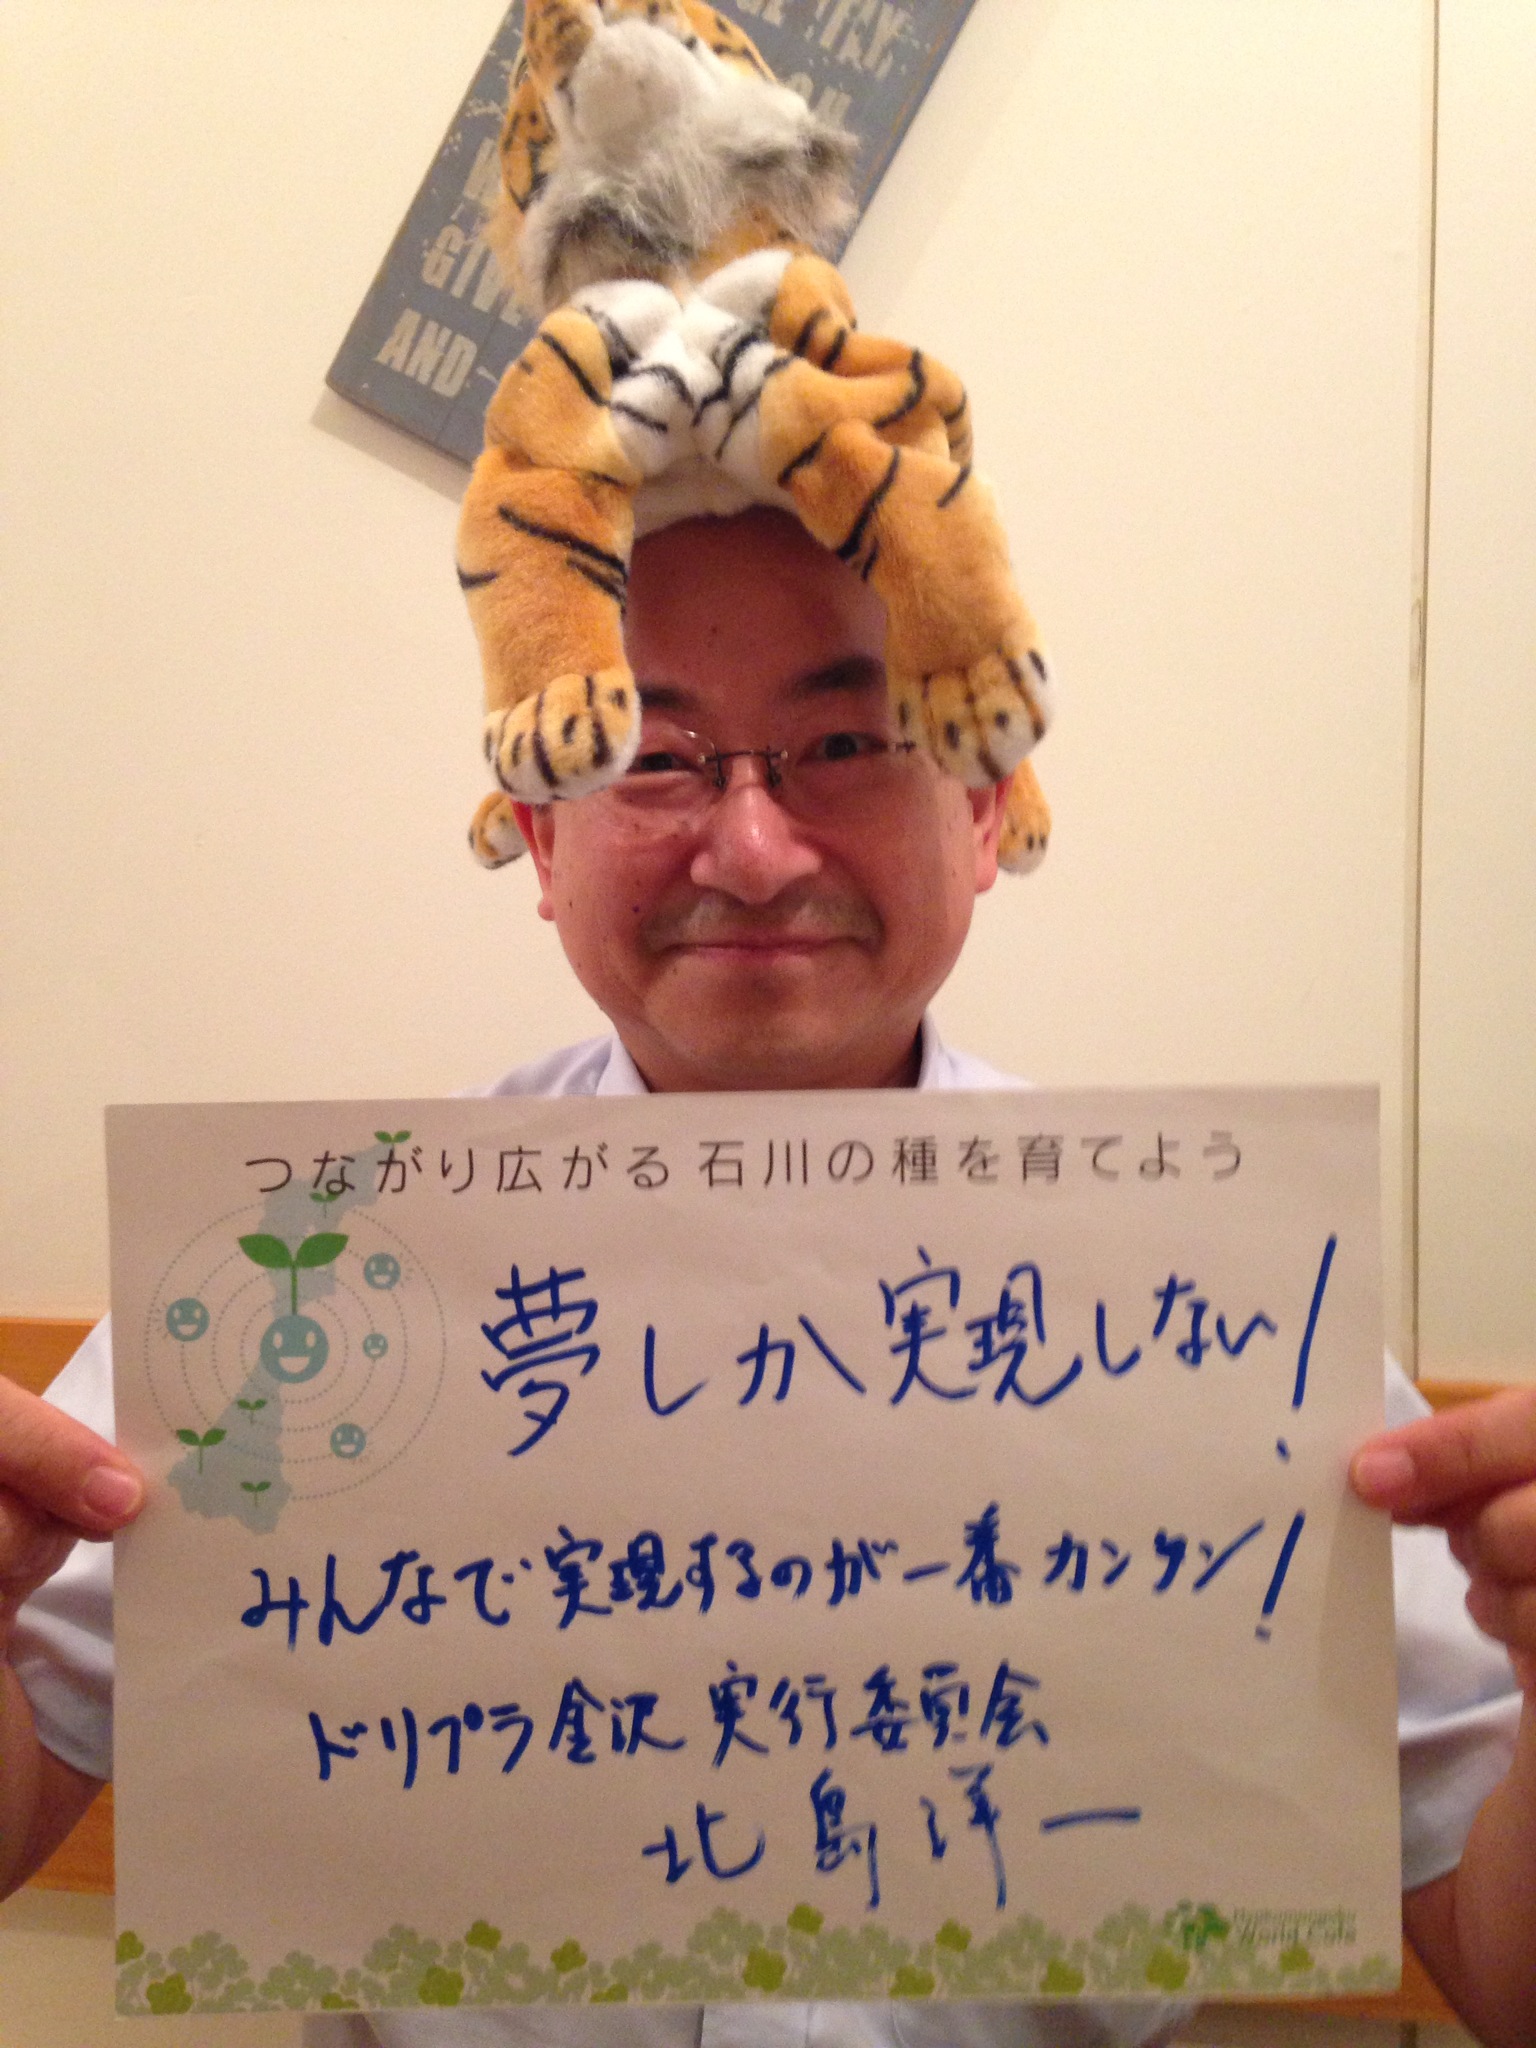 GIVE
AND
つながり広がる 石川の種を育てよう
夢しか実現しない!
みんなで実現するのが一番カンタン!
ドリプラ金沢 実行委員会
北島洋一
World Cafe